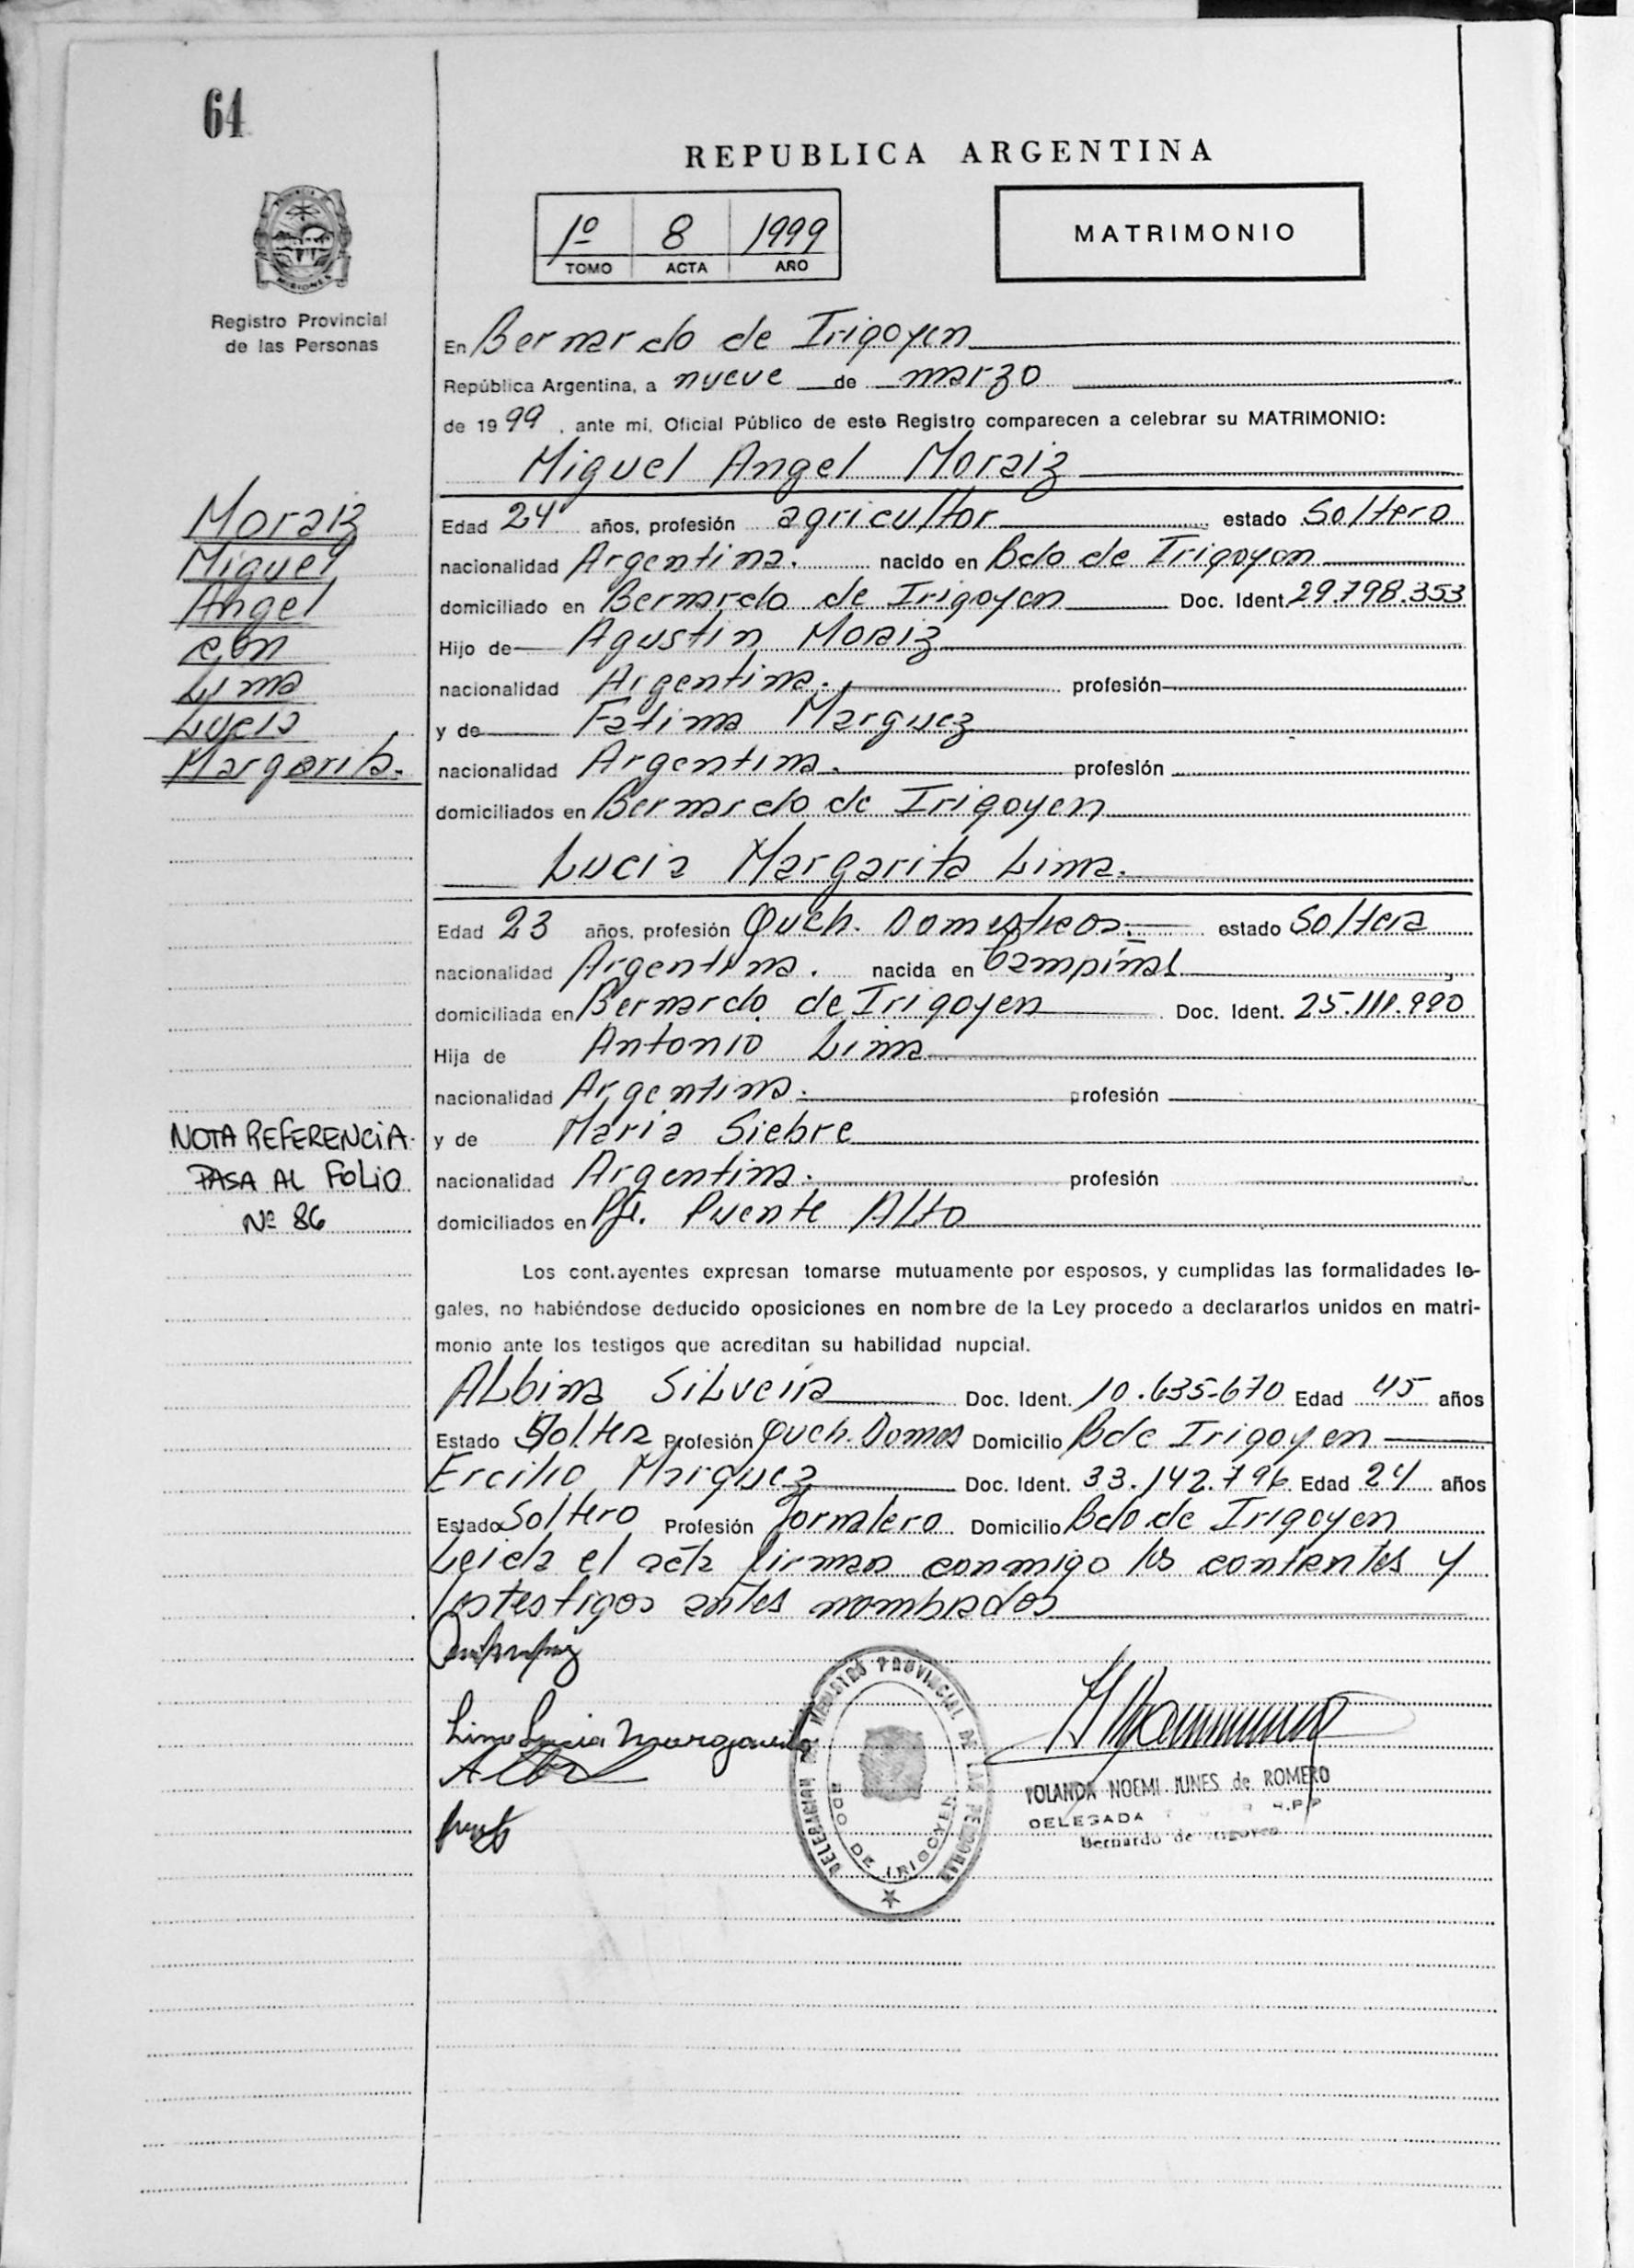 64
REPUBLICA ARGENTINA
1º 8 1999
TOMO ACTA AÑO
MATRIMONIO
PROVINCIA
MISIONES
Registro Provincial
de las Personas
En Bernardo de Irigoyen
República Argentina, a nueve de marzo
de 1999, ante mi, Oficial Público de este Registro comparecen a celebrar su MATRIMONIO:
Miguel Angel Moraiz
Moraiz
Miguel
Angel
con
Lima
Lucia
Margarita.
Edad 24 años, profesión agricultor estado Soltero
nacionalidad Argentina. nacido en Bdo de Irigoyen
domiciliado en Bernardo de Irigoyen Doc. Ident. 29.798.353
Hijo de Agustin Moraiz
nacionalidad Argentina. profesión
y de Fatima Marquez
nacionalidad Argentina. profesión
domiciliados en Bernardo de Irigoyen
Lucia Margarita Lima.
Edad 23 años, profesión Queh. Domesticos. estado Soltera
nacionalidad Argentina. nacida en Campinas
domiciliada en Bernardo de Irigoyen Doc. Ident. 25.111.990
Hija de Antonio Lima
nacionalidad Argentina. profesión
y de Maria Siebre
nacionalidad Argentina. profesión
domiciliados en Pje. Puente Alto
NOTA REFERENCIA.
PASA AL FOLIO
Nº 86
Los contrayentes expresan tomarse mutuamente por esposos, y cumplidas las formalidades le-
gales, no habiéndose deducido oposiciones en nombre de la Ley procedo a declararlos unidos en matri-
monio ante los testigos que acreditan su habilidad nupcial.
Albina Silveira Doc. Ident. 10.635.670 Edad 45 años
Estado Soltera Profesión Queh. Domes Domicilio Bde Irigoyen
Ercilio Marquez Doc. Ident. 33.142.796 Edad 24 años
Estado Soltero Profesión Jornalero Domicilio Bdo de Irigoyen
Leida el acta firman conmigo los contrentes y
los testigos antes nombrados
Lima Lucia Margarita
DELEGACION REGISTRO PROVINCIAL DE LAS PERSONAS
BDO DE IRIGOYEN
YOLANDA NOEMI JUNES de ROMERO
DELEGADA R.P.P
Bernardo de Irigoyen